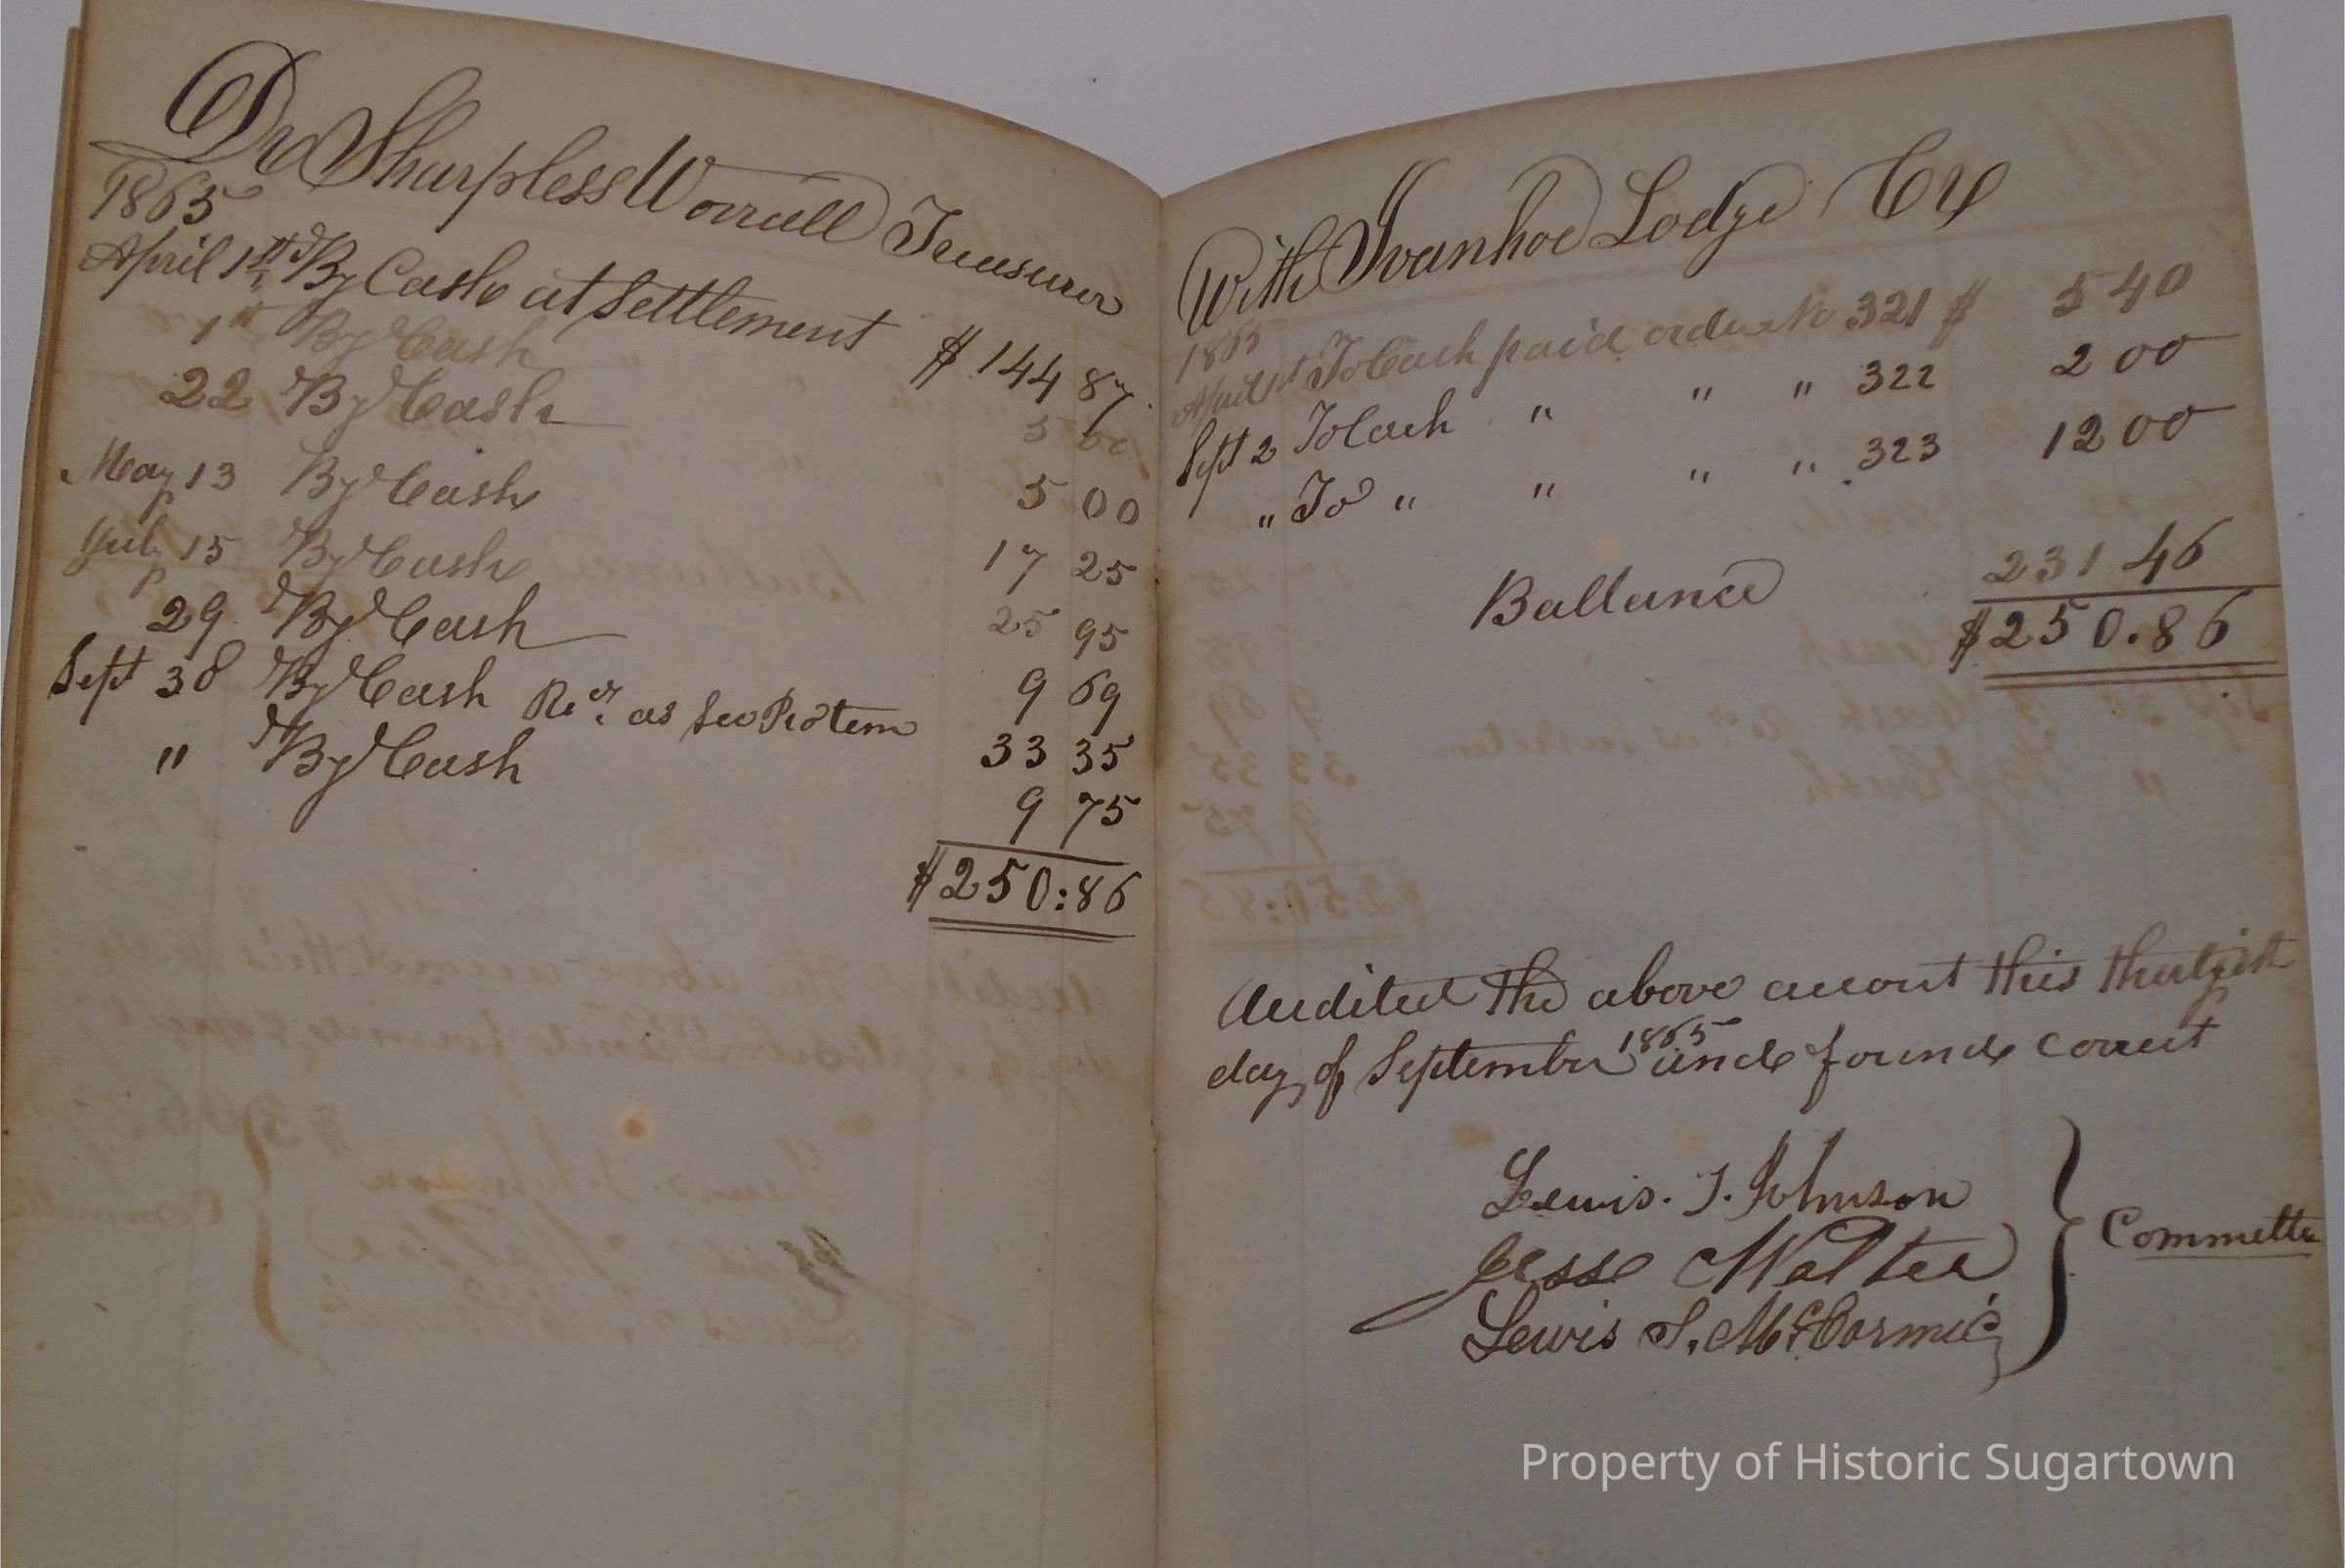 Dr Sharpless Worrall Treasurer
1865
April 1st By Cash at Settlement $ 144 87
1st By Cash 5 00
22 By Cash 5 00
May 13 By Cash 17 25
July 15 By Cash 25 95
29 By Cash 9 69
Sept 30 By Cash Recd. as Sec Protem 33 35
" By Cash 9 75
$250:86
With Ivanhoe Lodge Cr
1865
April 1st To Cash paid order No 321 $ 5 40
Sept 2 To Cash " " " 322 2 00
" To " " " " 323 12 00
Ballance 231 46
$250.86
Audited the above account this
day of September 1865 and found correct
Lewis. J. Johnson
Jesse Walter
Lewis S. McCormic
Committe
Property of Historic Sugartown